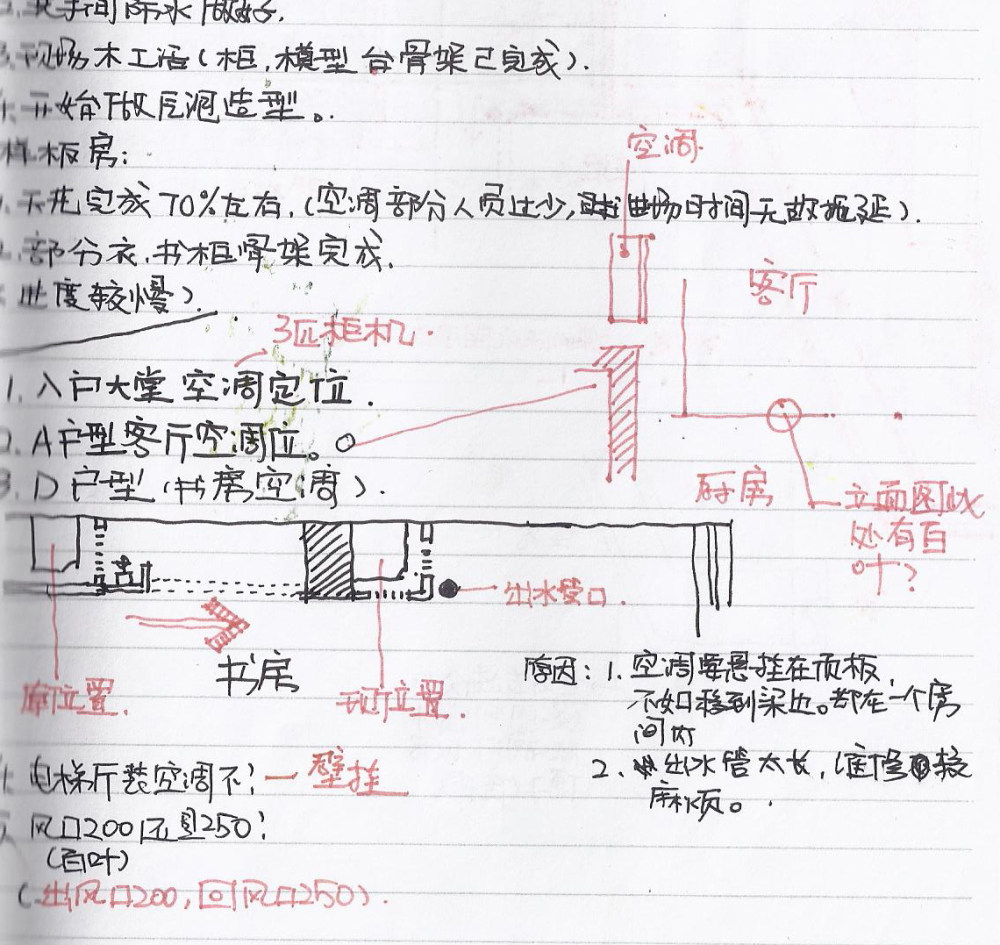 洗手间防水做好.
3.现场木工活(柜,模型台骨架已完成).
4.开始做瓦泥造型。
样板房:
1.天花完成70%左右,(空调部分人员过少,进场时间无故拖延).
2.部分衣.书柜骨架完成.
(进度较慢).
空调.
客厅
3匹柜机.
1.入户大堂空调定位.
2.A户型客厅空调位。
3.D户型(书房空调).
厨房
立面图此
处有百
叶?
出水管口.
书房
原位置.
现订位置.
原因:1.空调要悬挂在顶板,
不如移到梁边。都在一个房
间内
2.出水管太长,维修较
麻烦。
4.电梯厅装空调不?—壁挂
5.风口200还是250?
(百叶)
(出风口200,回风口250).